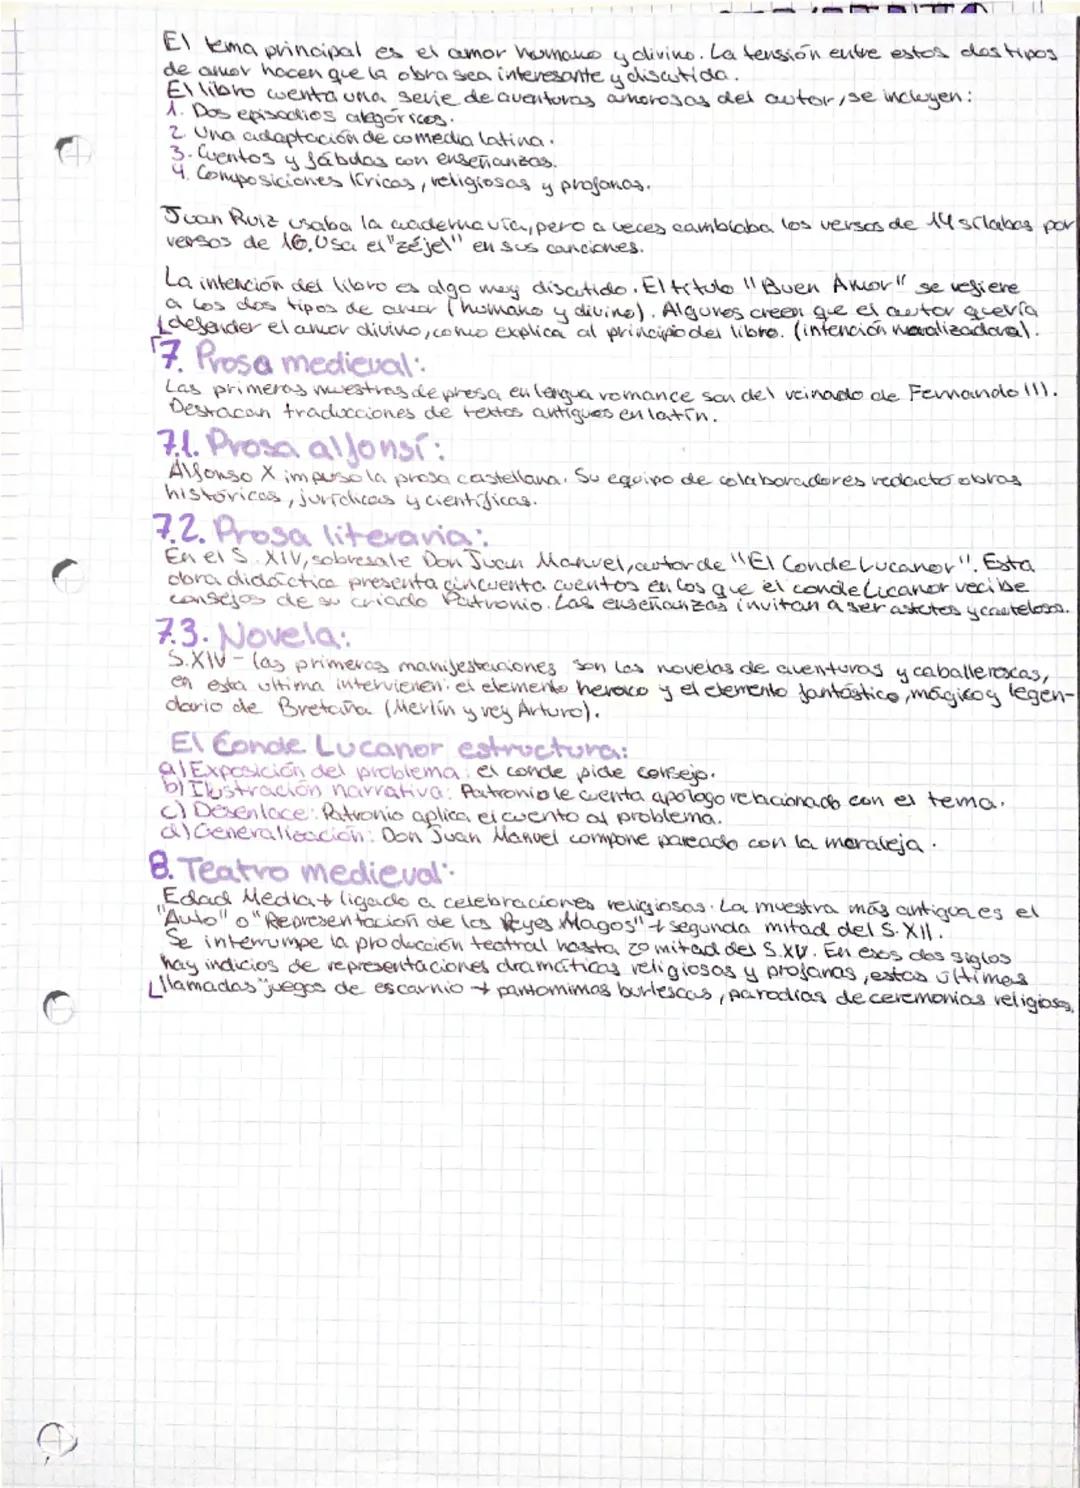 El tema principal es el amor humano y divino. La tensión entre estos dos tipos
de amor hacen que la obra sea interesante y discutida.
El libro cuenta una serie de aventuras amorosas del autor, se incluyen:
1. Dos episodios alegóricos.
2. Una adaptación de comedia latina.
3. Cuentos y fábulas con enseñanzas.
4. Composiciones líricas, religiosas y profanas.
Juan Ruiz usaba la cuaderna vía, pero a veces cambiaba los versos de 14 sílabas por
versos de 16. Usa el "zéjel" en sus canciones.
La intención del libro es algo muy discutido. El título "Buen Amor" se refiere
a los dos tipos de amor (humano y divino). Algunos creen que el autor quería
defender el amor divino, como explica al principio del libro. (intención moralizadora).
7. Prosa medieval:
Las primeras muestras de prosa en lengua romance son del reinado de Fernando III.
Destacan traducciones de textos antiguos en latín.
7.1. Prosa alfonsí:
Alfonso X impuso la prosa castellana. Su equipo de colaboradores redactó obras
históricas, jurídicas y científicas.
7.2. Prosa literaria:
En el S. XIV, sobresale Don Juan Manuel, autor de "El Conde Lucanor". Esta
obra didáctica presenta cincuenta cuentos en los que el conde Lucanor recibe
consejos de su criado Patronio. Las enseñanzas invitan a ser astutos y cautelosos.
7.3. Novela:
S.XIV - las primeras manifestaciones son las novelas de aventuras y caballerescas,
en esta ultima intervienen: el elemento heroico y el elemento fantástico, mágico y legen-
dario de Bretaña (Merlín y rey Arturo).
El Conde Lucanor estructura:
a) Exposición del problema: el conde pide consejo.
b) Ilustración narrativa: Patronio le cuenta apólogo relacionado con el tema.
c) Desenlace: Patronio aplica el cuento al problema.
d) Generalización: Don Juan Manuel compone pareado con la moraleja.
8. Teatro medieval:
Edad Media → ligado a celebraciones religiosas. La muestra más antigua es el
"Auto" o "Representación de los Reyes Magos" → segunda mitad del S. XII.
Se interrumpe la producción teatral hasta 2ª mitad del S. XV. En esos dos siglos
hay indicios de representaciones dramáticas religiosas y profanas, estas últimas
llamadas "juegos de escarnio → pantomimas burlescas, parodias de ceremonias religiosas.